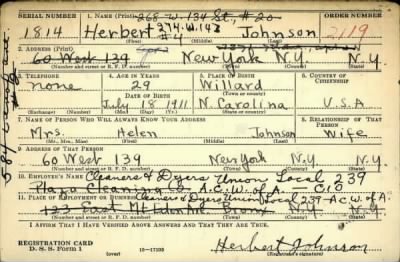 SERIAL NUMBER 1. NAME (Print) 268 W. 134 St., # 20 ORDER NUMBER
274 W. 143
1814 Herbert #4 Johnson 2119
2. ADDRESS (Print)
60 West 139 New York N.Y. N.Y
(Number and street or R. F. D. number) (Town) (County) (State)
3. TELEPHONE 4. AGE IN YEARS 5. PLACE OF BIRTH 6. COUNTRY OF CITIZENSHIP
none 29 Willard
DATE OF BIRTH
July 18 1911 N. Carolina U.S.A
(Exchange) (Number) (Mo.) (Day) (Yr.) (State or country)
7. NAME OF PERSON WHO WILL ALWAYS KNOW YOUR ADDRESS 8. RELATIONSHIP OF THAT PERSON
Mrs. Helen Johnson Wife
(Mr., Mrs., Miss) (First) (Middle) (Last)
9. ADDRESS OF THAT PERSON
60 West 139 New York N.Y. N.Y
(Number and street or R. F. D. number) (Town) (County) (State)
10. EMPLOYER'S NAME Cleaners & Dyers Union Local 239
Cleaning Co A.C.W. of A. — CIO
11. PLACE OF EMPLOYMENT OR BUSINESS Cleaners & Dyers Union Local 239-A.C.W. of A.
123 East Mt Eden Ave. Bronx N.Y.
(Number and street or R. F. D. number) (Town) (County) (State)
I AFFIRM THAT I HAVE VERIFIED ABOVE ANSWERS AND THAT THEY ARE TRUE.
REGISTRATION CARD
D. S. S. Form 1 (over) 16—17105 Herbert Johnson
(Registrant's signature)